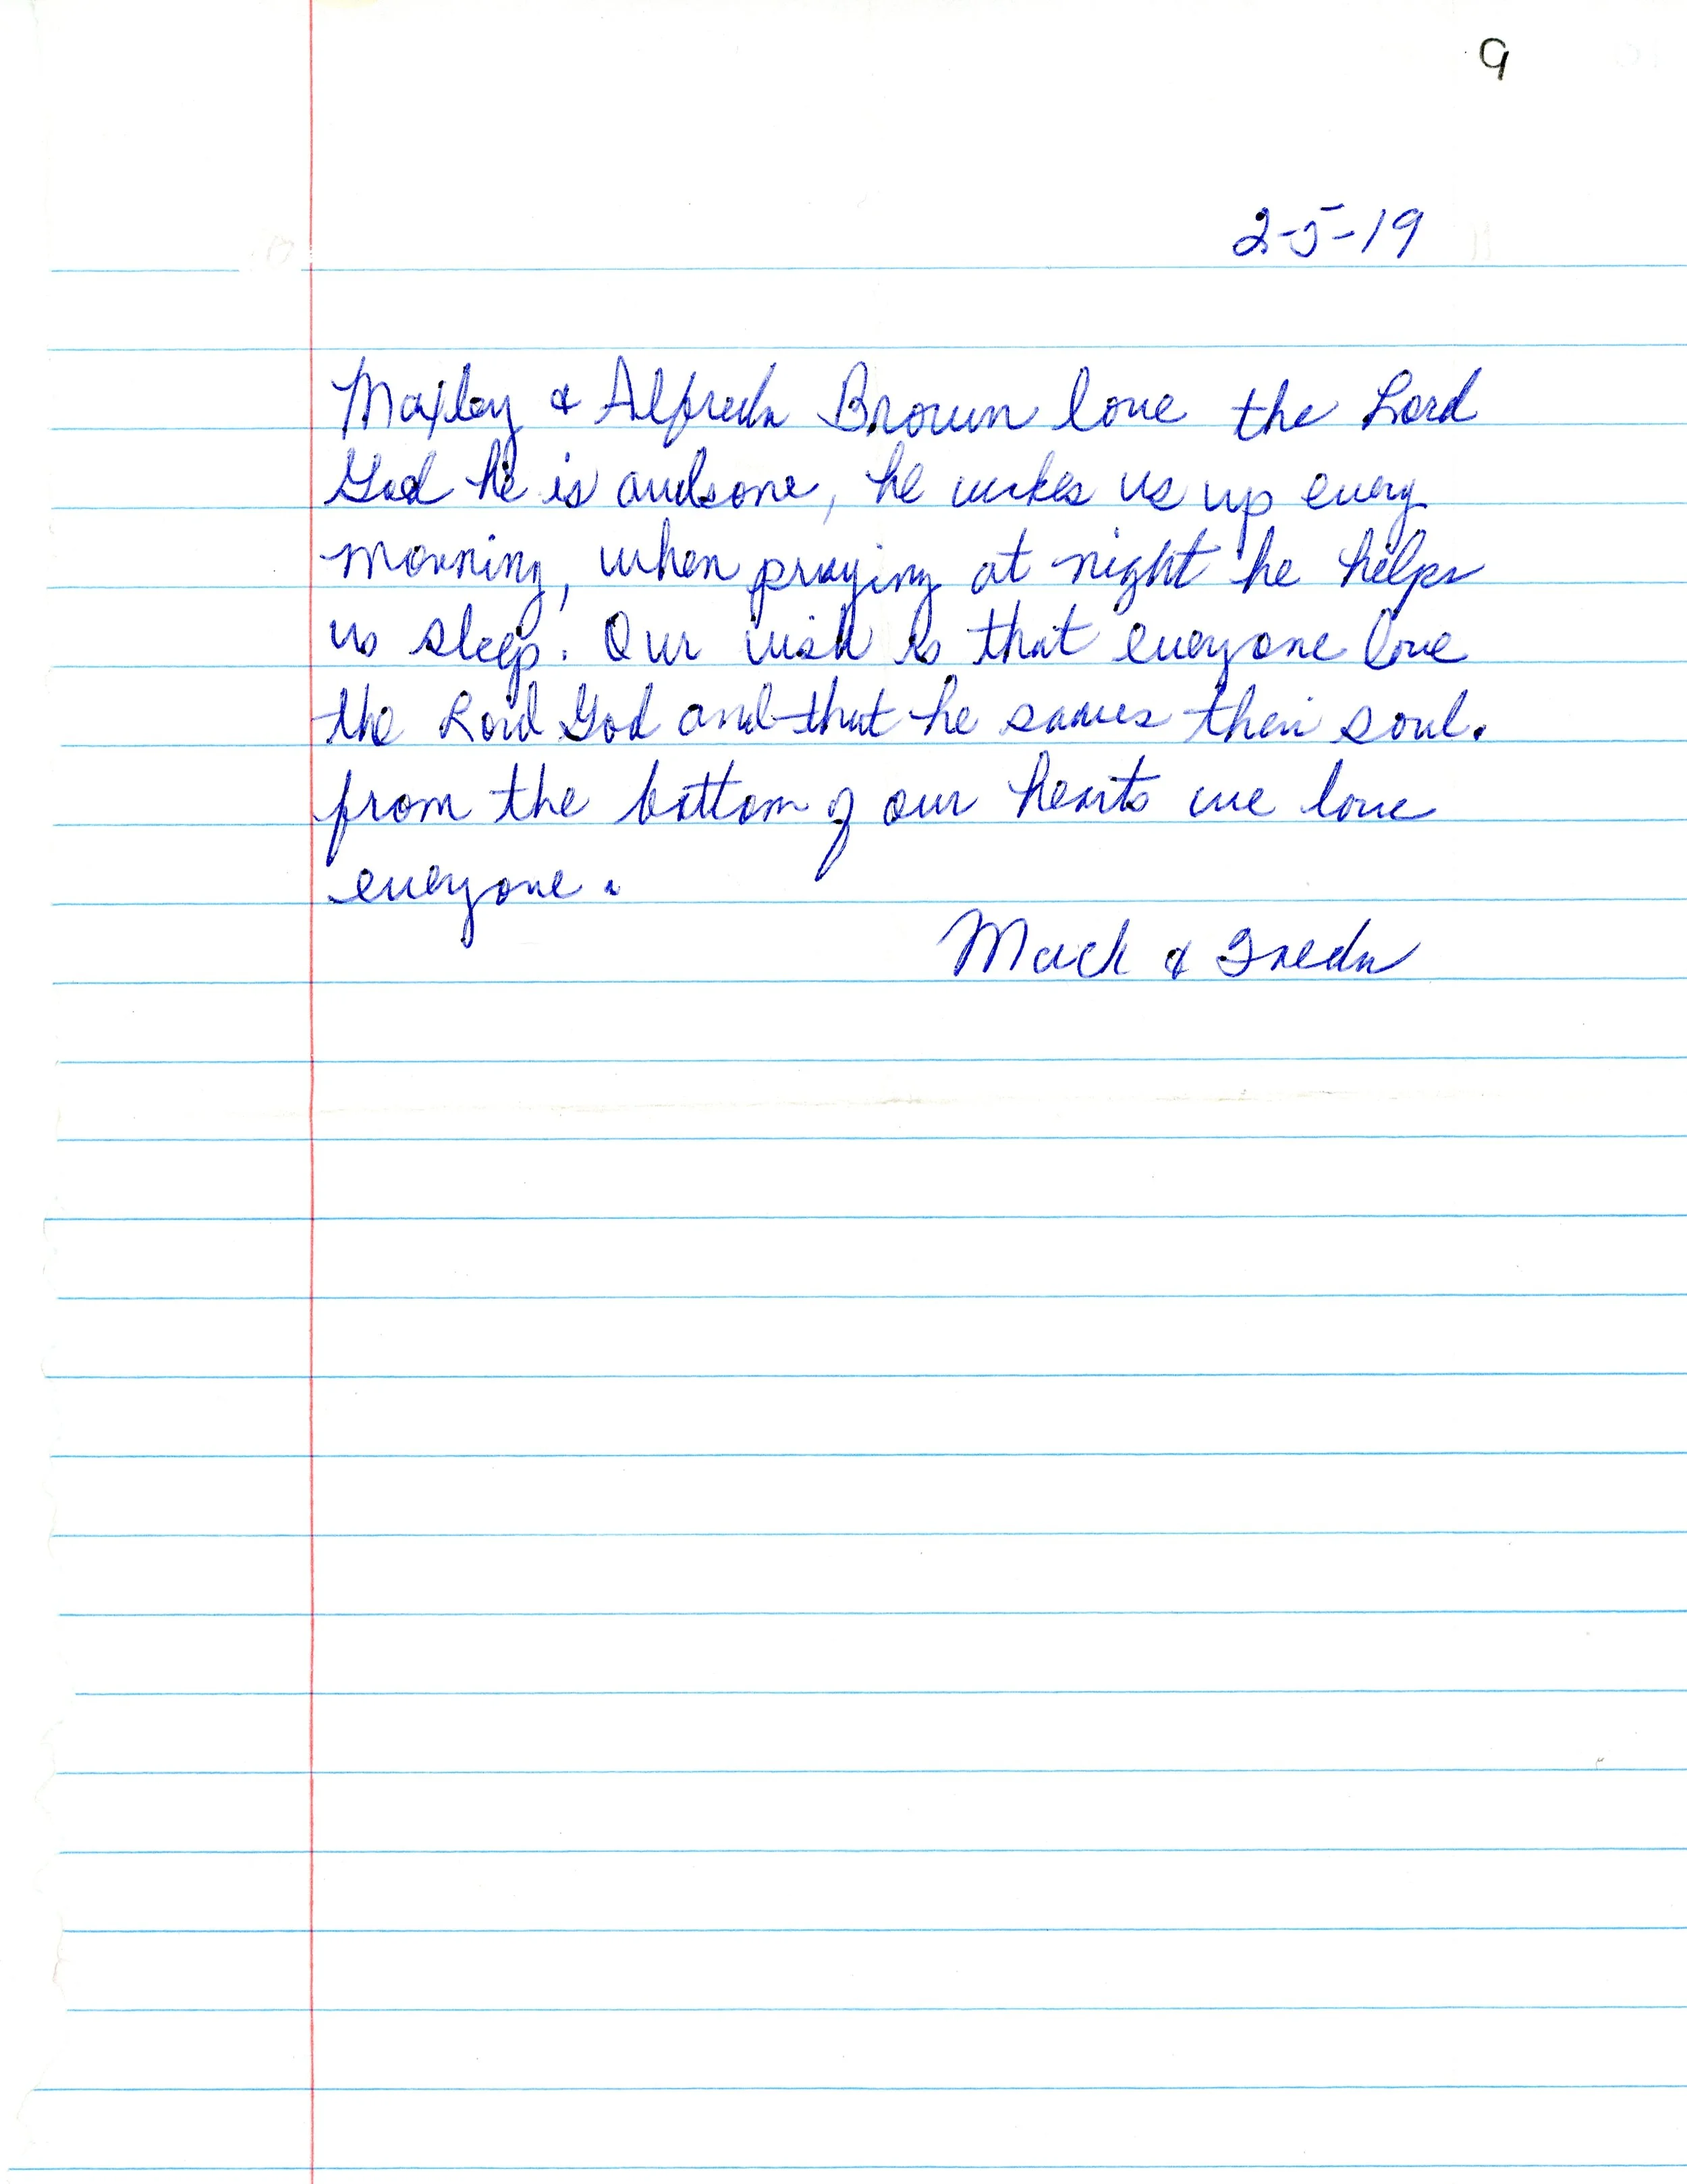 9
2-5-19
Maxley & Alfreda Brown love the Lord
God he is awesome, he wakes us up every
morning, when praying at night he helps
us sleep. Our wish is that everyone love
the Lord God and that he saves their soul.
from the bottom of our hearts we love
everyone.
Mack & Freda